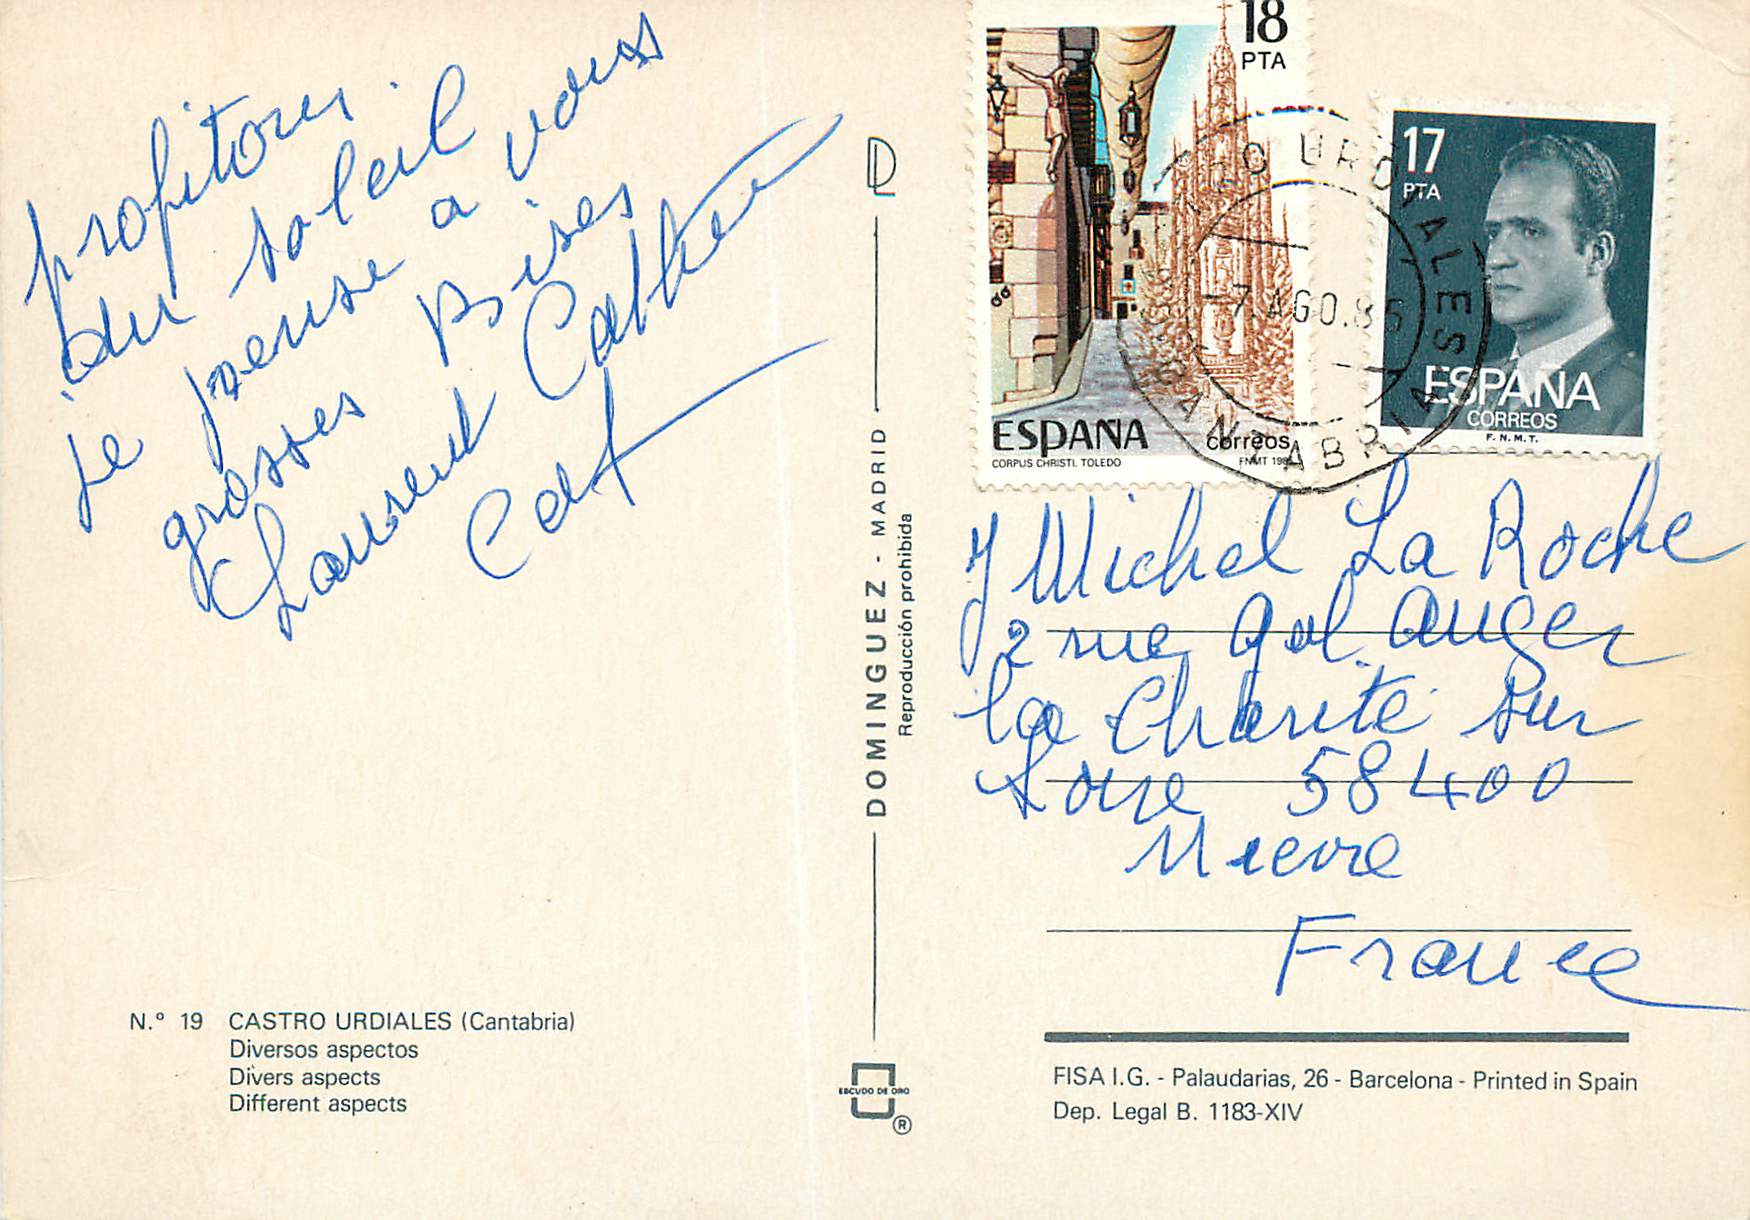 profitons
du soleil
je pense a vous
grosses Bises
Laurent Cathen
18
PTA
ESPAÑA
correos
CORPUS CHRISTI. TOLEDO
FNMT 198
17
PTA
ESPAÑA
CORREOS
F.N.M.T.
URDIALES
-7.AGO.86
CANTABRIA
DOMINGUEZ - MADRID
Reproducción prohibida
J Michel La Roche
2 rue Gal Auger
la Charité sur
Loire 58400
Nievre
France
N.º 19 CASTRO URDIALES (Cantabria)
Diversos aspectos
Divers aspects
Different aspects
ESCUDO DE ORO
®
FISA I.G. - Palaudarias, 26 - Barcelona - Printed in Spain
Dep. Legal B. 1183-XIV